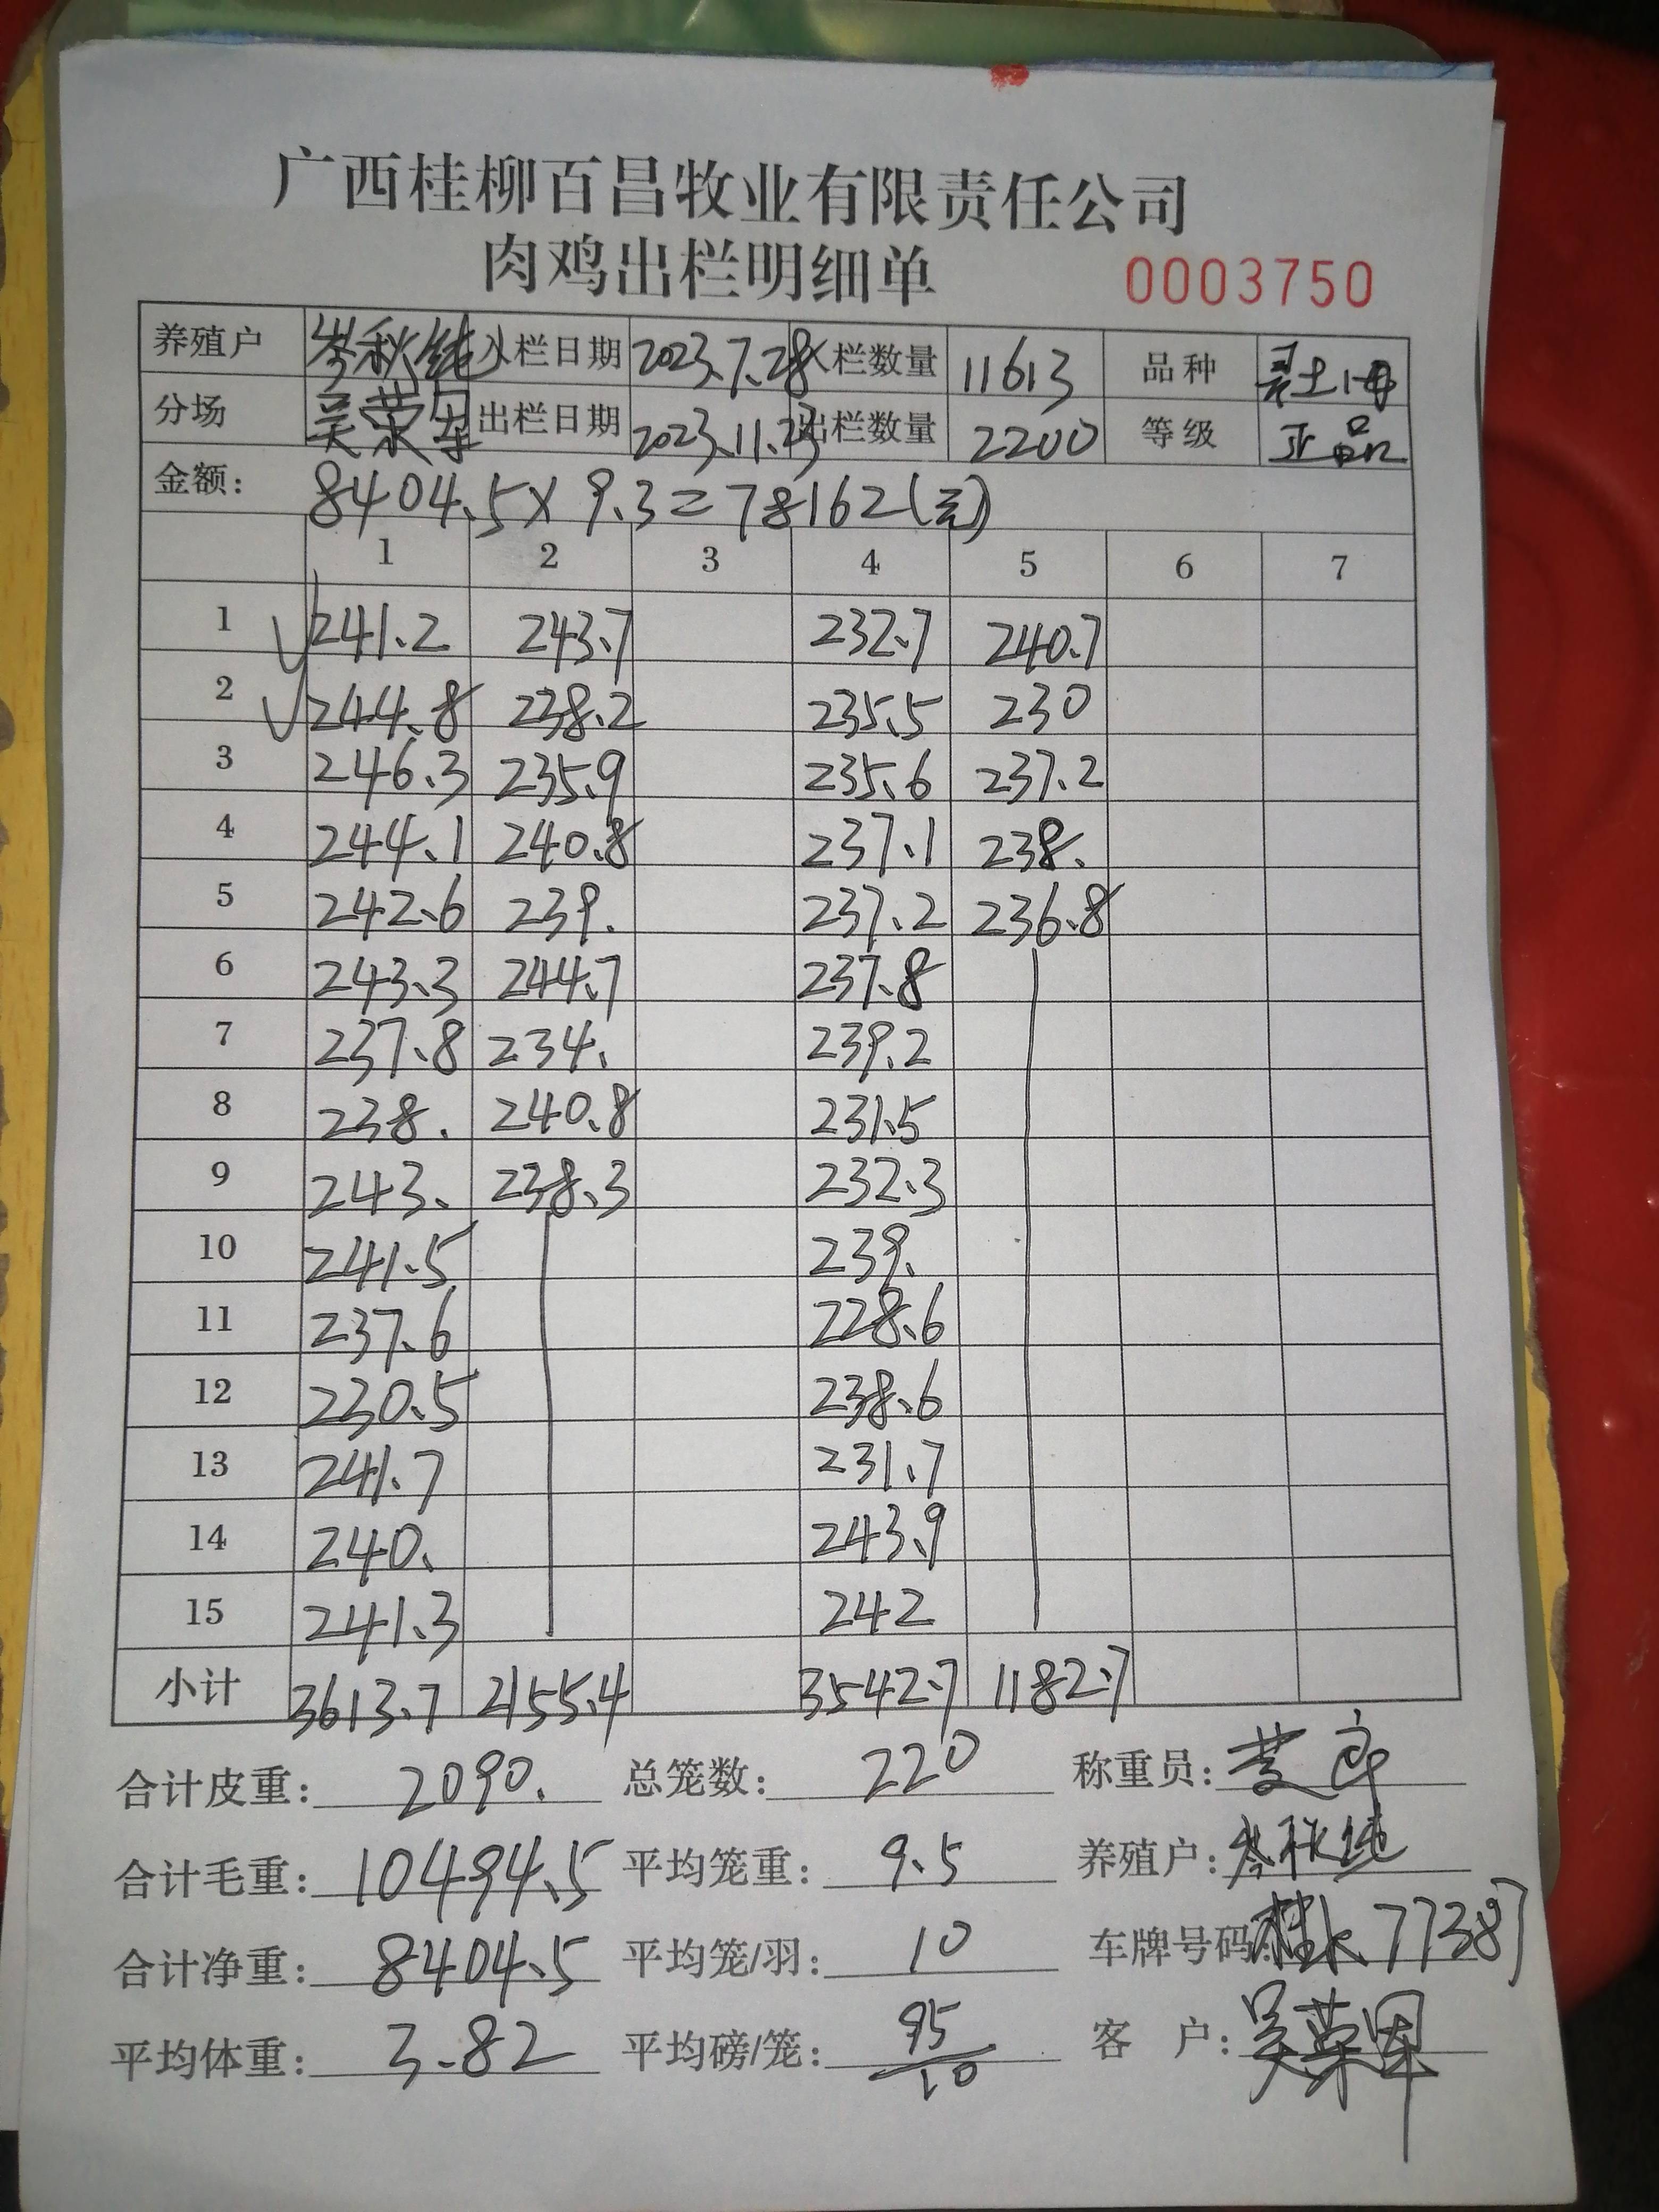 广西桂柳百昌牧业有限责任公司
肉鸡出栏明细单 0003750
养殖户 岑秋纯 入栏日期 2023.7.28 入栏数量 11613 品种 土1母
分场 吴荣军 出栏日期 2023.11.23 出栏数量 2200 等级 正品
金额: 8404.5×9.3=78162(元)
1 2 3 4 5 6 7
1 241.2 243.7 232.7 240.7
2 244.8 238.2 235.5 230
3 246.3 235.9 235.6 237.2
4 244.1 240.8 237.1 238.
5 242.6 239. 237.2 236.8
6 243.3 244.7 237.8
7 237.8 234. 239.2
8 238. 240.8 231.5
9 243. 238.3 232.3
10 241.5 239.
11 237.6 228.6
12 230.5 238.6
13 241.7 231.7
14 240. 243.9
15 241.3 242
小计 3613.7 2155.4 3542.7 1182.7
合计皮重: 2090. 总笼数: 220 称重员:
合计毛重: 10494.5 平均笼重: 9.5 养殖户: 岑秋纯
合计净重: 8404.5 平均笼/羽: 10 车牌号码: 桂K77387
平均体重: 3.82 平均磅/笼: 95/10 客 户: 吴荣军